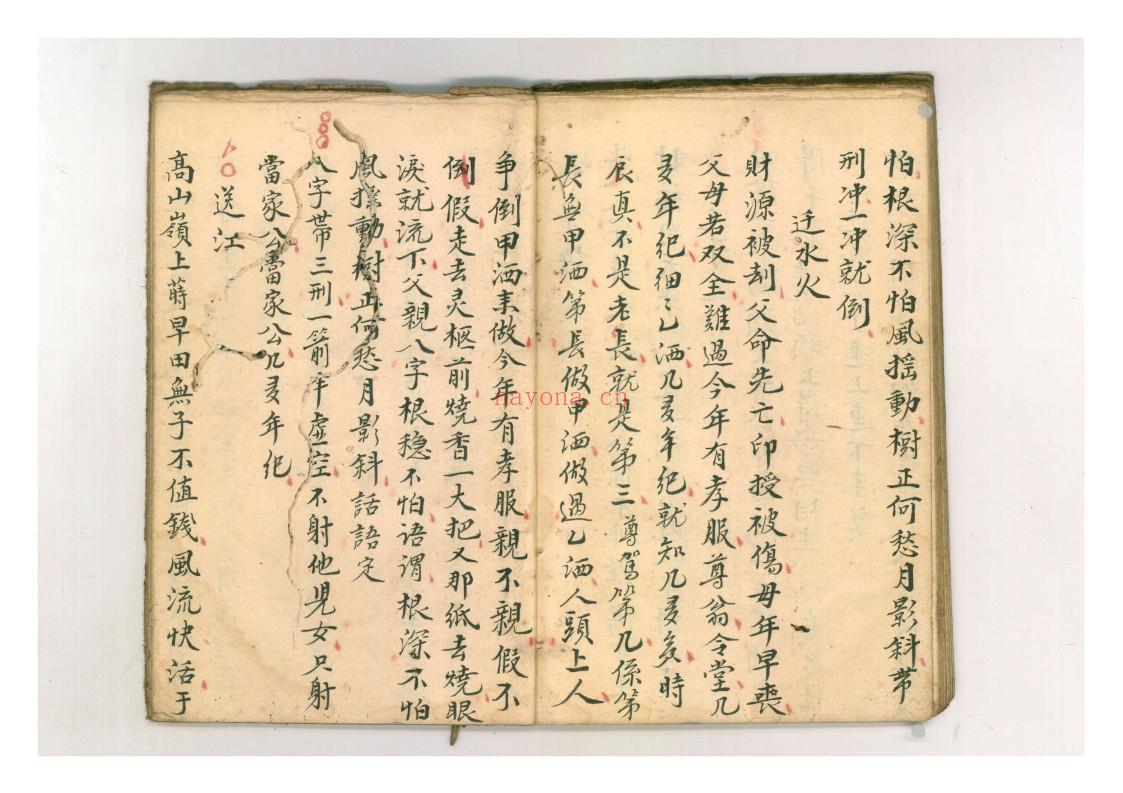 怕根深不怕風搖動樹正何愁月影斜带
刑冲一冲就倒
迁水火
財源被刦父命先亡印授被傷毋年早喪
父母若双全難過今年有孝服尊翁令堂几
多年纪细〻乙洒几多年纪就知几多多時
辰真不是老長就是第三尊駕第几係第
長無甲洒第長做甲洒做過乙洒人頭上人
争倒甲洒未做今年有孝服親不親假不
倒假走去灵柩前燒香一大把又那纸去燒眼
淚就流下父親八字根穩不怕語谓根深不怕
風搖動樹正何愁月影斜話語定
八字带三刑一箭半虚空不射他児女只射
當家公當家公几多年纪
送江
髙山嶺上蒔早田無子不值錢風流快活于
nayona.cn